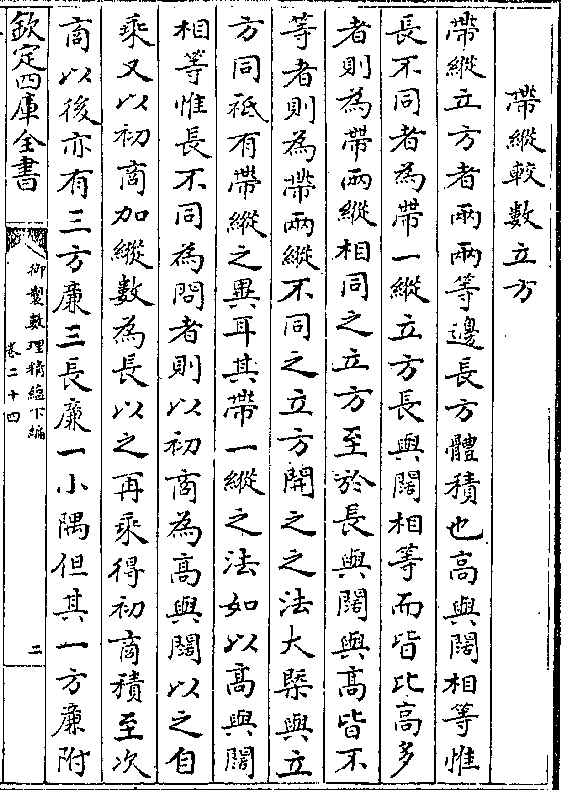 帶縱較數立方
帶縱立方者兩兩等邊長方體積也高與闊相等惟
長不同者為帶一縱立方長與闊相等而皆比高多
者則為帶兩縱相同之立方至於長與闊與高皆不
等者則為帶兩縱不同之立方開之之法大槩與立
方同祗有帶縱之異耳其帶一縱之法如以高與闊
相等惟長不同為問者則以初商為高與闊以之自
乘又以初商加縱數為長以之再乘得初商積至次
商以後亦有三方廉三長廉一小隅但其一方廉附
欽定四庫全書
御製數理精蘊下編
卷二十四
二